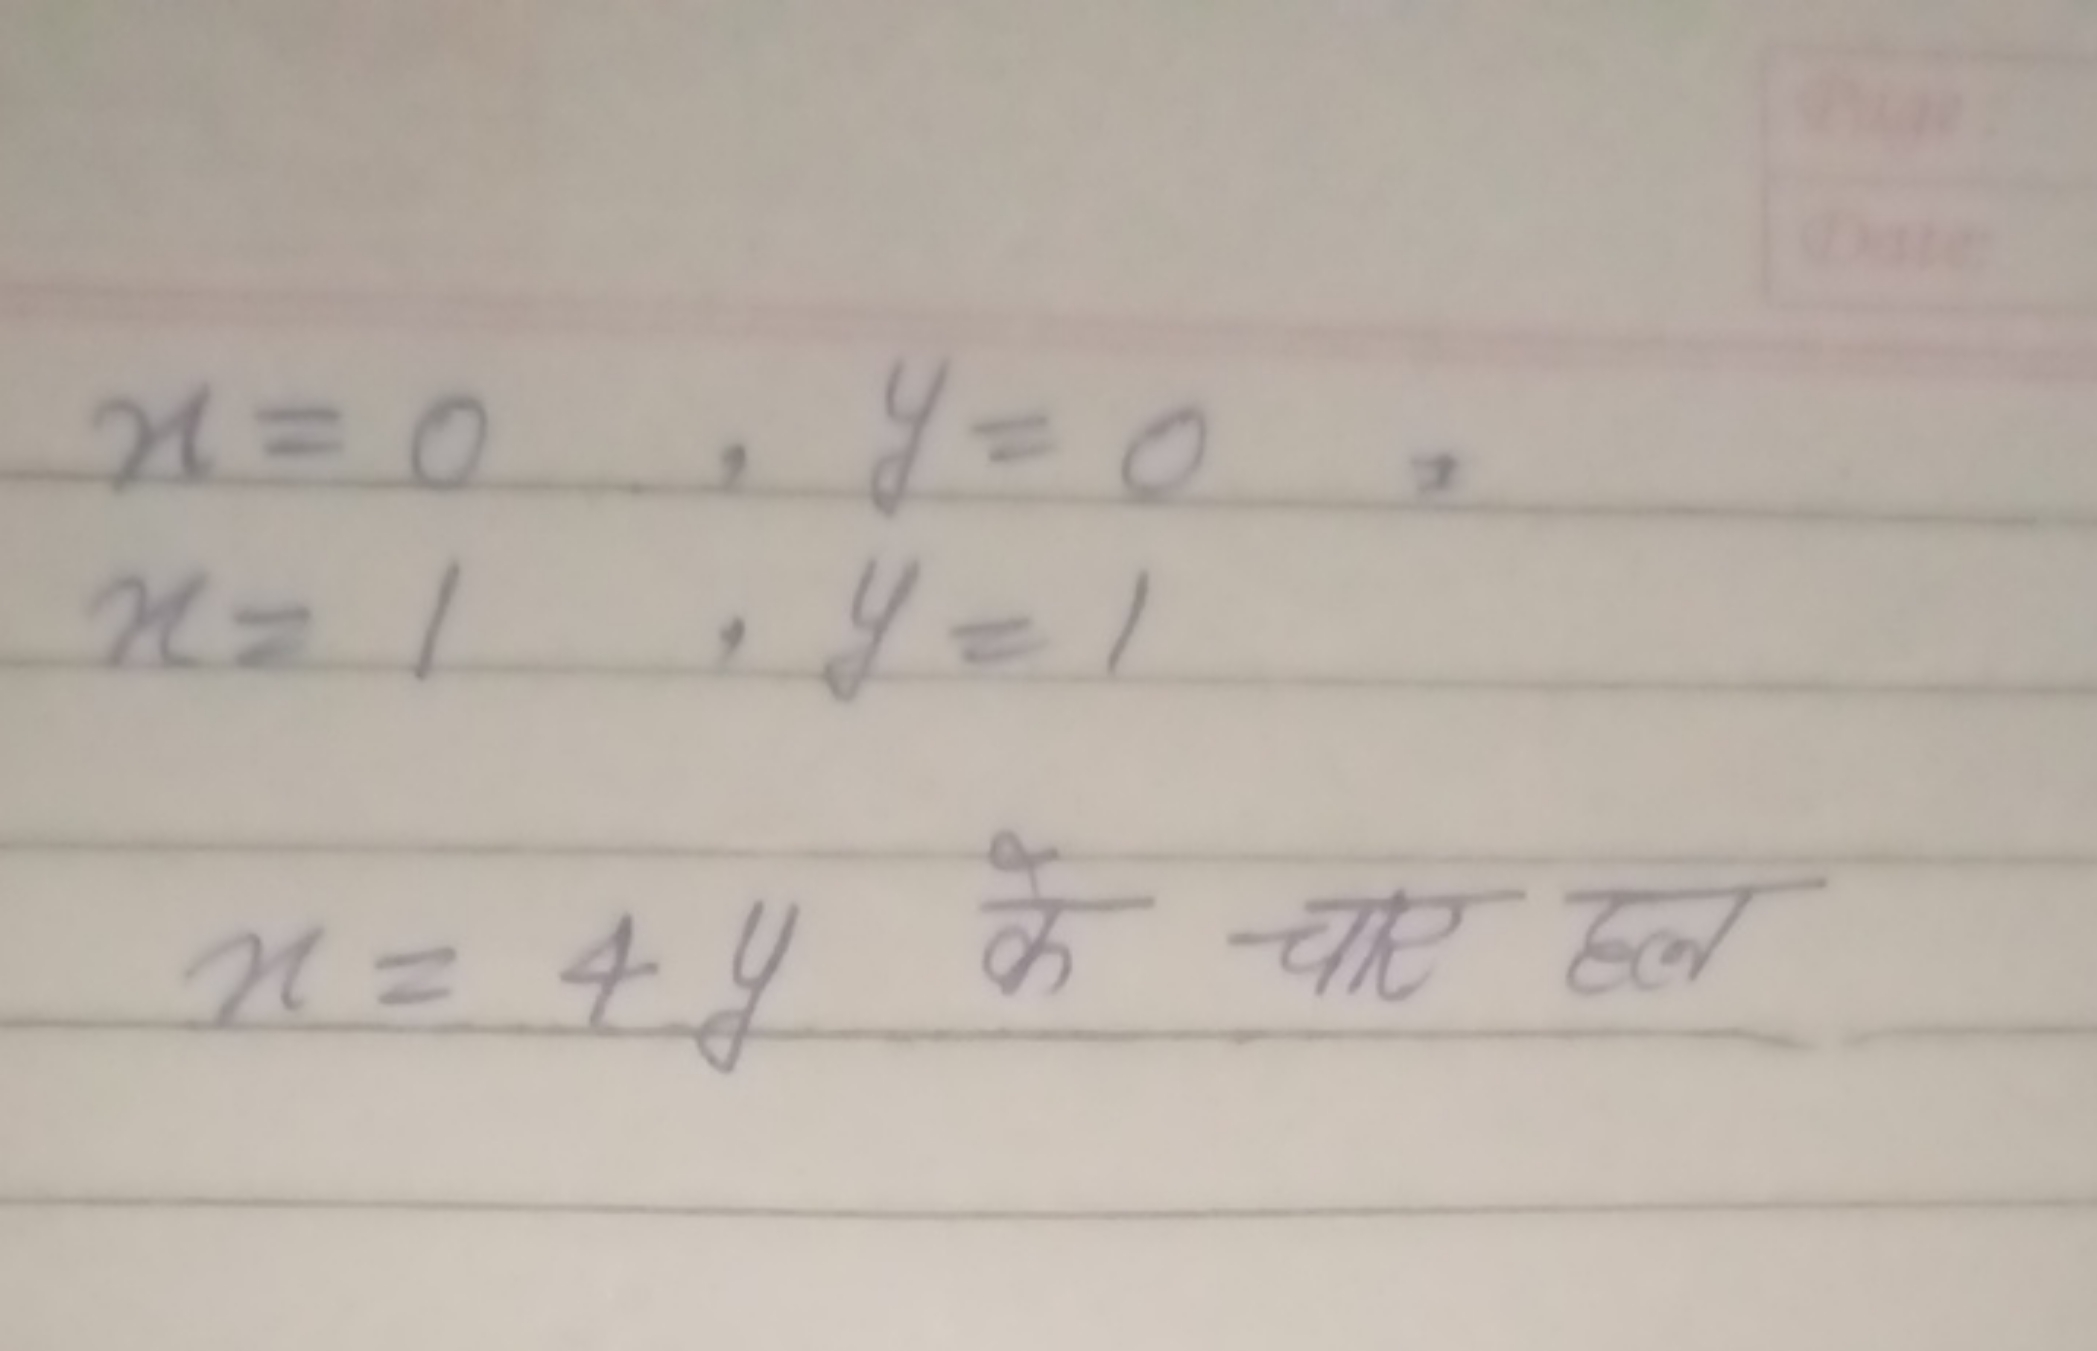 Page
Date
x = 0 , y = 0 ,
x = 1 , y = 1
x = 4y के चार हल